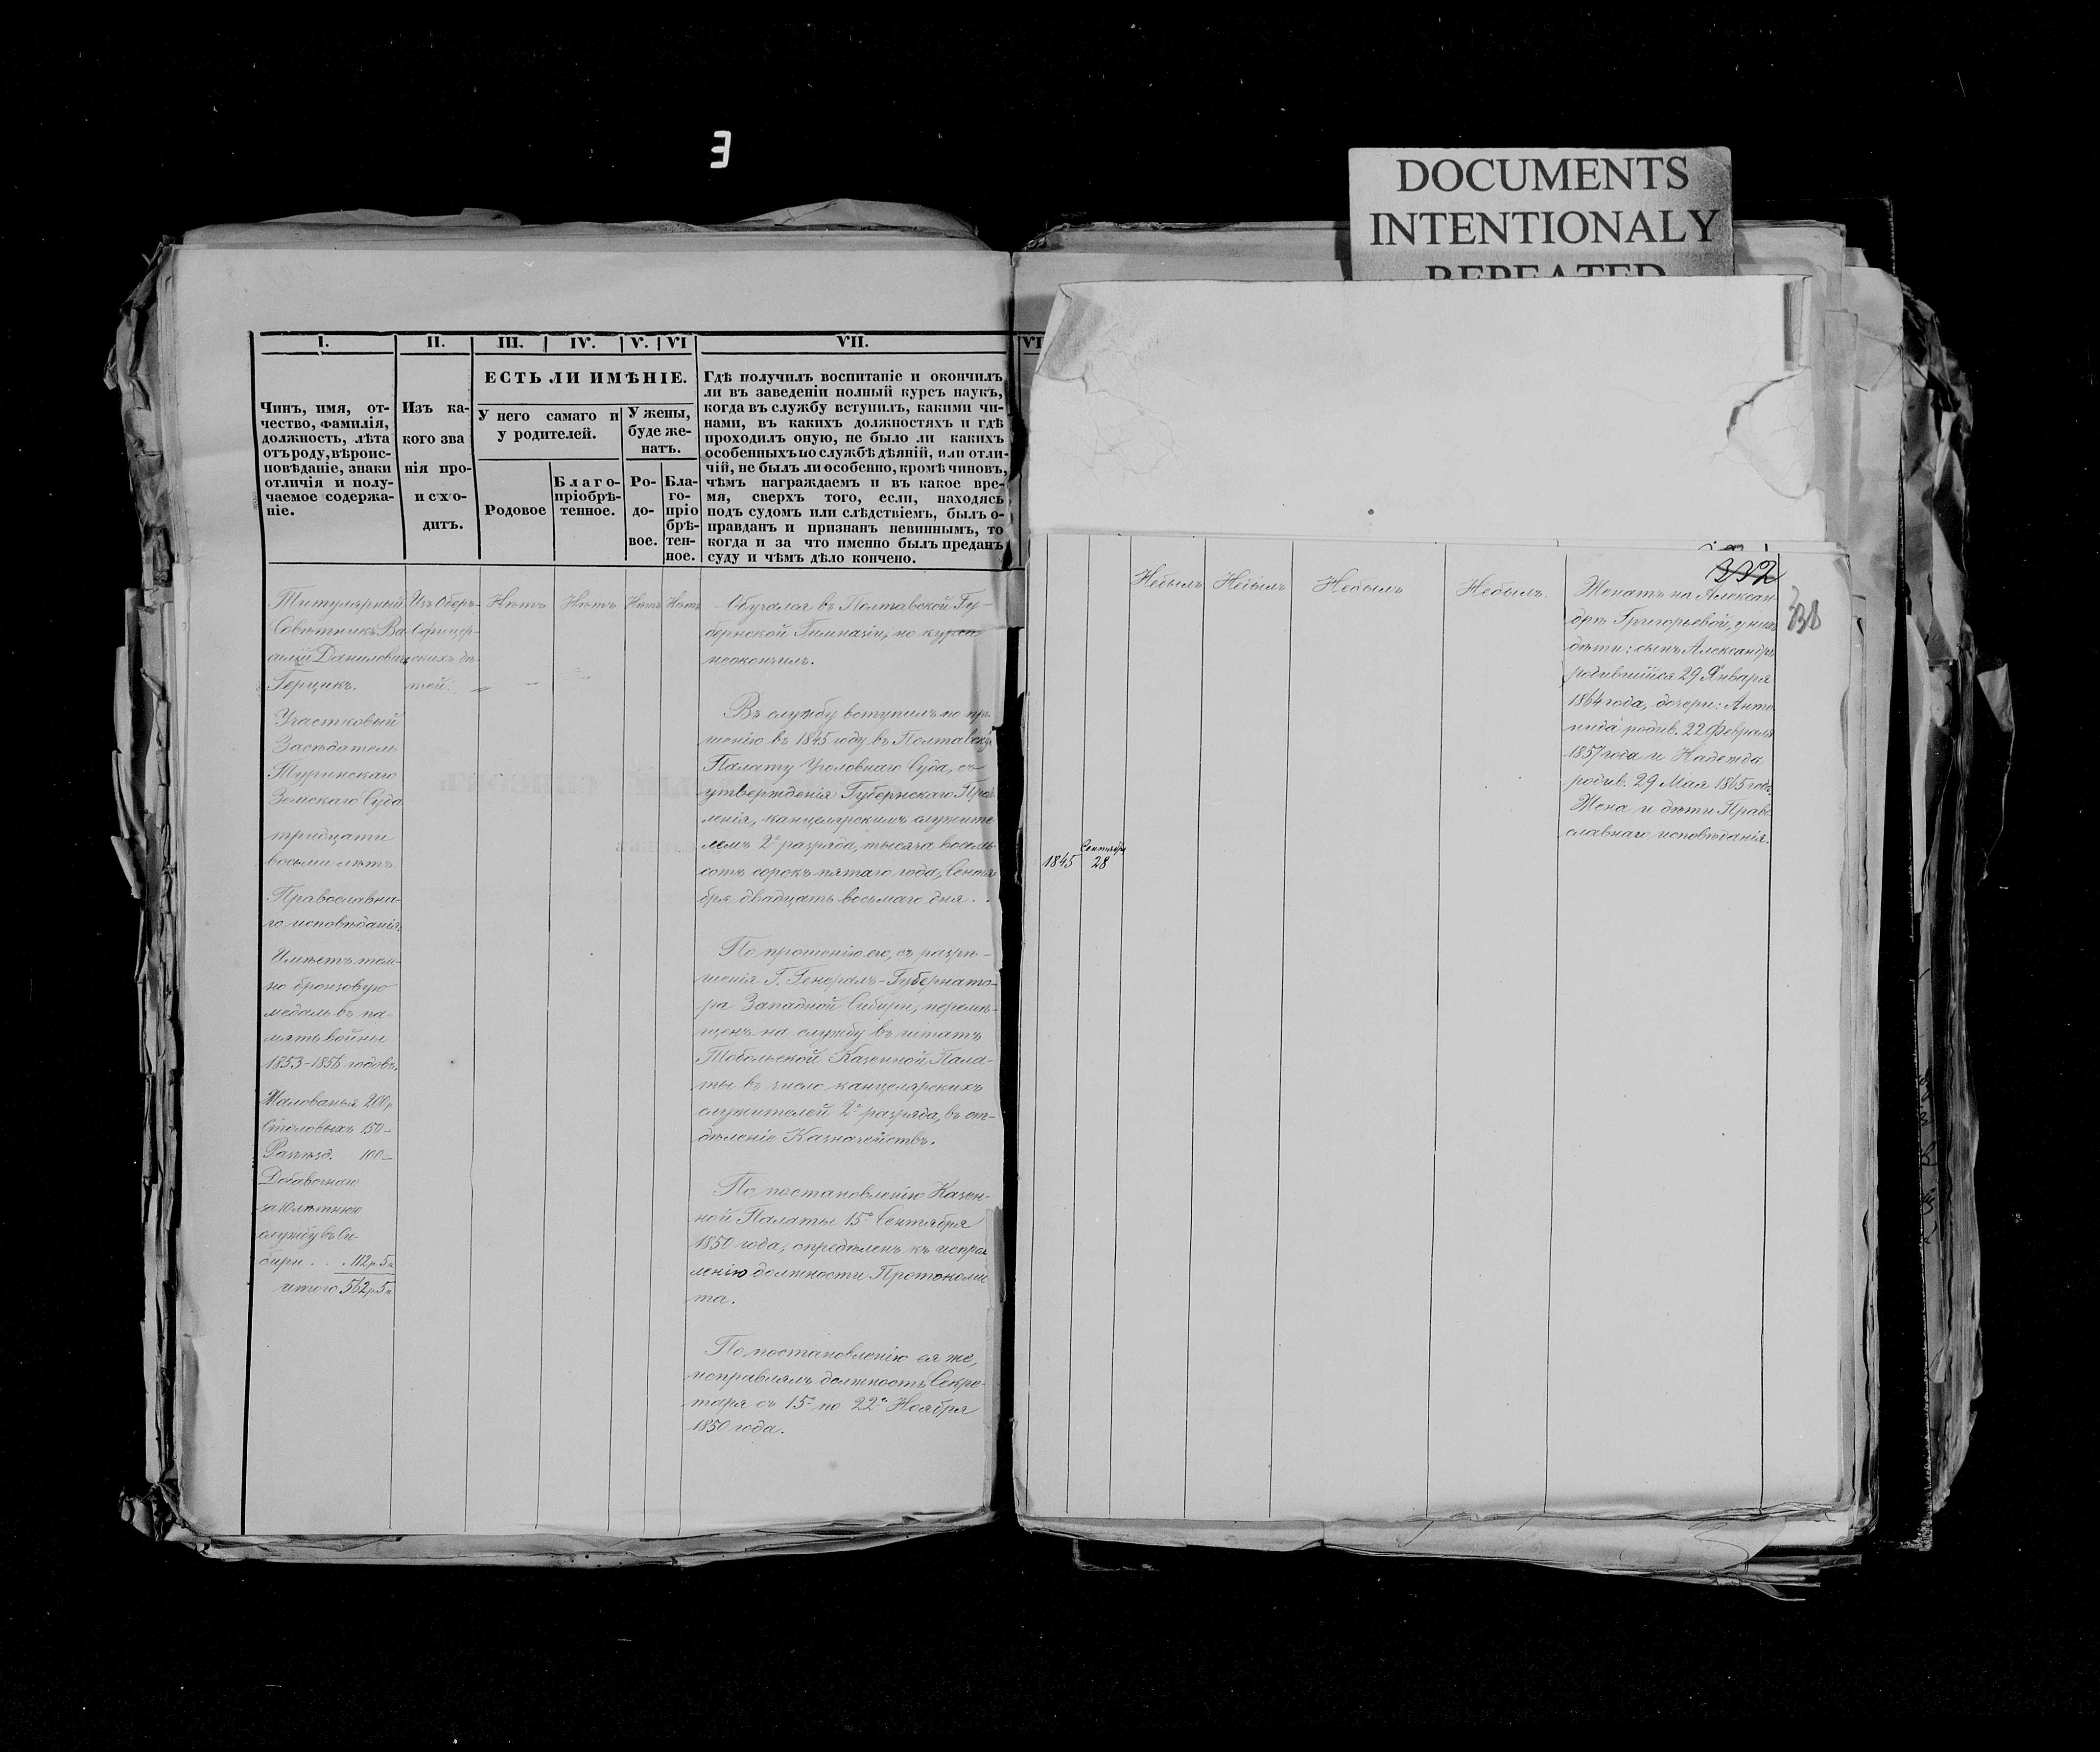 E
DOCUMENTS
INTENTIONALY
REPEATED
I.
Чинъ, имя, от-
чество, фамилія,
должность, лѣта
отъ роду, вѣроис-
повѣданіе, знаки
отличія и полу-
чаемое содержа-
ніе.
II.
Изъ ка-
кого зва
нія про-
исхо-
дитъ.
III.
IV.
V.
VI
ЕСТЬ ЛИ ИМѢНІЕ.
У него самаго и
у родителей.
У жены,
буде же-
натъ.
Родовое
Благо-
пріобрѣ-
тенное.
Ро-
до-
вое.
Бла-
го-
пріо
брѣ-
тен-
ное.
VII.
Гдѣ получилъ воспитаніе и окончилъ
ли въ заведеніи полный курсъ наукъ,
когда въ службу вступилъ, какими чи-
нами, въ какихъ должностяхъ и гдѣ
проходилъ оную, не было ли какихъ
особенныхъ по службѣ дѣяній, или отли-
чій, не былъ ли особенно, кромѣ чиновъ,
чѣмъ награждаемъ и въ какое вре-
мя, сверхъ того, если, находясь
подъ судомъ или слѣдствіемъ, былъ о-
правданъ и признанъ невиннымъ, то
когда и за что именно былъ преданъ
суду и чѣмъ дѣло кончено.
VI
Титулярный
Совѣтникъ Ва-
силій Даниловичъ
Герцикъ.
Участковый
Засѣдатель
Туринскаго
Земскаго Суда
тридцати
восьми лѣтъ.
Православна-
го исповѣданія.
Имѣетъ тем-
но бронзовую
медаль въ па-
мять войны
1853-1856 годовъ.
Жалованья 200 р
Столовыхъ 150-
Разъѣзд. 100-
Добавочнаго
за 10 лѣтнюю
службу въ Си-
бири . . 112 р. 5 к.
итого 562 р. 5 к.
Изъ Оберъ-
Офицер-
скихъ дѣ-
тей.
Нѣтъ
Нѣтъ
Нѣтъ
Нѣтъ
Обучался въ Полтавской Гу-
бернской Гимназіи, но курса
неокончилъ.
Въ службу вступилъ по про-
шенію въ 1845 году въ Полтавскую
Палату Уголовнаго Суда, съ
утвержденія Губернскаго Прав-
ленія, канцелярскимъ служите
лемъ 2го разряда, тысяча восемь
сотъ сорокъ пятаго года, Сентя
бря двадцать восьмаго дня . .
По прошенію его, съ разрѣ-
шенія Г. Генералъ-Губернато-
ра Западной Сибири, перемѣ-
щенъ на службу въ штатъ
Тобольской Казенной Пала-
ты въ число канцелярскихъ
служителей 2го разряда, въ от-
дѣленіе Казначействъ.
По постановленію Казен-
ной Палаты 15го Сентября
1850 года, опредѣленъ къ исправ
ленію должности Протоколис
та.
По постановленію ея же,
исправлялъ должность Секре-
таря съ 15го по 22е Ноября
1850 года.
1845
Сентября
28
Небылъ
Небылъ
Небылъ
Небылъ.
332
338
Женатъ на Алексан-
дрѣ Григорьевой, у нихъ
дѣти: сынъ Александръ
родившійся 29 Января
1864 года, дочери: Анто
нида родив. 22 Февраля
1857 года и Надежда
родив. 29 Мая 1865 года.
Жена и дѣти Право
славнаго исповѣданія.